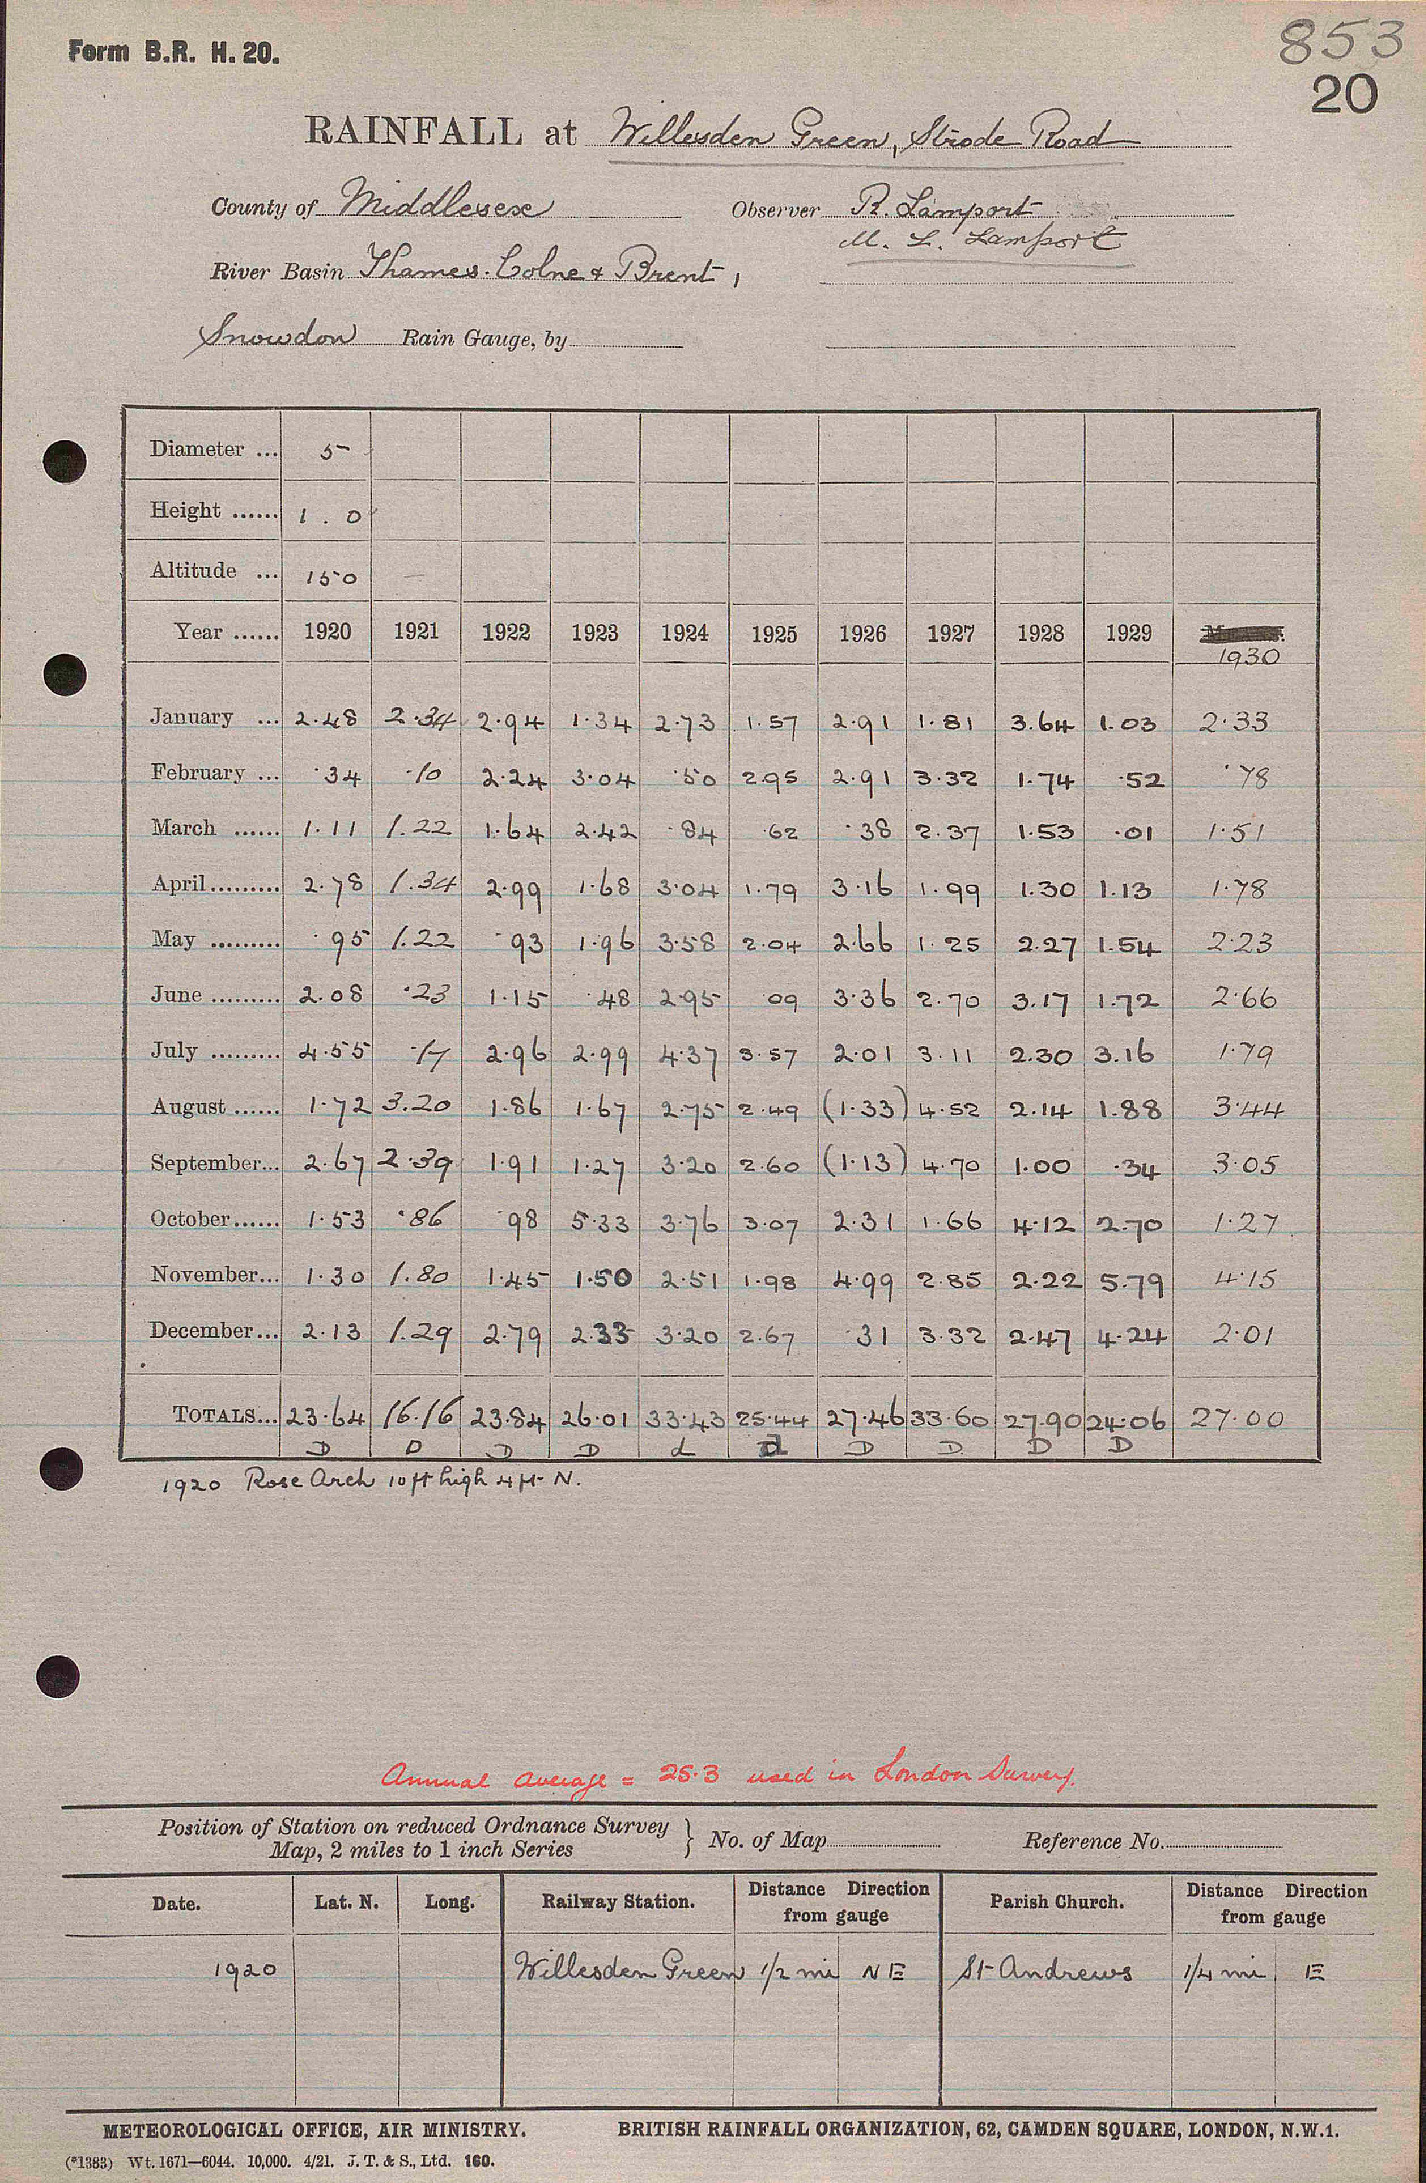 Form B.R. H. 20.
853
20
RAINFALL at Willesden Green, Strode Road
County of Middlesex Observer R. Lamport
M. L. Lamport
River Basin Thames. Colne & Brent,
Snowdon Rain Gauge, by
Diameter ... 5
Height ...... 1 . 0
Altitude ... 150
Year ...... 1920 1921 1922 1923 1924 1925 1926 1927 1928 1929
1930
January ... 2.48 2.34 2.94 1.34 2.73 1.57 2.91 1.81 3.64 1.03 2.33
February ... .34 .10 2.24 3.04 .50 2.95 2.91 3.32 1.74 .52 .78
March ...... 1.11 1.22 1.64 2.42 .84 .62 .38 2.37 1.53 .01 1.51
April......... 2.78 1.34 2.99 1.68 3.04 1.79 3.16 1.99 1.30 1.13 1.78
May ......... .95 1.22 .93 1.96 3.58 2.04 2.66 1.25 2.27 1.54 2.23
June ......... 2.08 .23 1.15 .48 2.95 09 3.36 2.70 3.17 1.72 2.66
July ......... 4.55 .17 2.96 2.99 4.37 3.57 2.01 3.11 2.30 3.16 1.79
August ...... 1.72 3.20 1.86 1.67 2.75 2.49 (1.33) 4.52 2.14 1.88 3.44
September... 2.67 2.39 1.91 1.27 3.20 2.60 (1.13) 4.70 1.00 .34 3.05
October...... 1.53 .86 .98 5.33 3.76 3.07 2.31 1.66 4.12 2.70 1.27
November... 1.30 1.80 1.45 1.50 2.51 1.98 4.99 2.85 2.22 5.79 4.15
December... 2.13 1.29 2.79 2.33 3.20 2.67 .31 3.32 2.47 4.24 2.01
TOTALS... 23.64 16.16 23.84 26.01 33.43 25.44 27.46 33.60 27.90 24.06 27.00
D D D D d d D D D D
1920 Rose Arch 10ft high 4ft N.
Annual average = 25.3 used in London Survey.
Position of Station on reduced Ordnance Survey
Map, 2 miles to 1 inch Series } No. of Map Reference No.
Date. Lat. N. Long. Railway Station. Distance Direction from gauge Parish Church. Distance Direction from gauge
1920 Willesden Green 1/2 mi NE St Andrews 1/4 mi E
METEOROLOGICAL OFFICE, AIR MINISTRY. BRITISH RAINFALL ORGANIZATION, 62, CAMDEN SQUARE, LONDON, N.W.1.
(*1383) Wt. 1671—6044. 10,000. 4/21. J. T. & S., Ltd. 160.